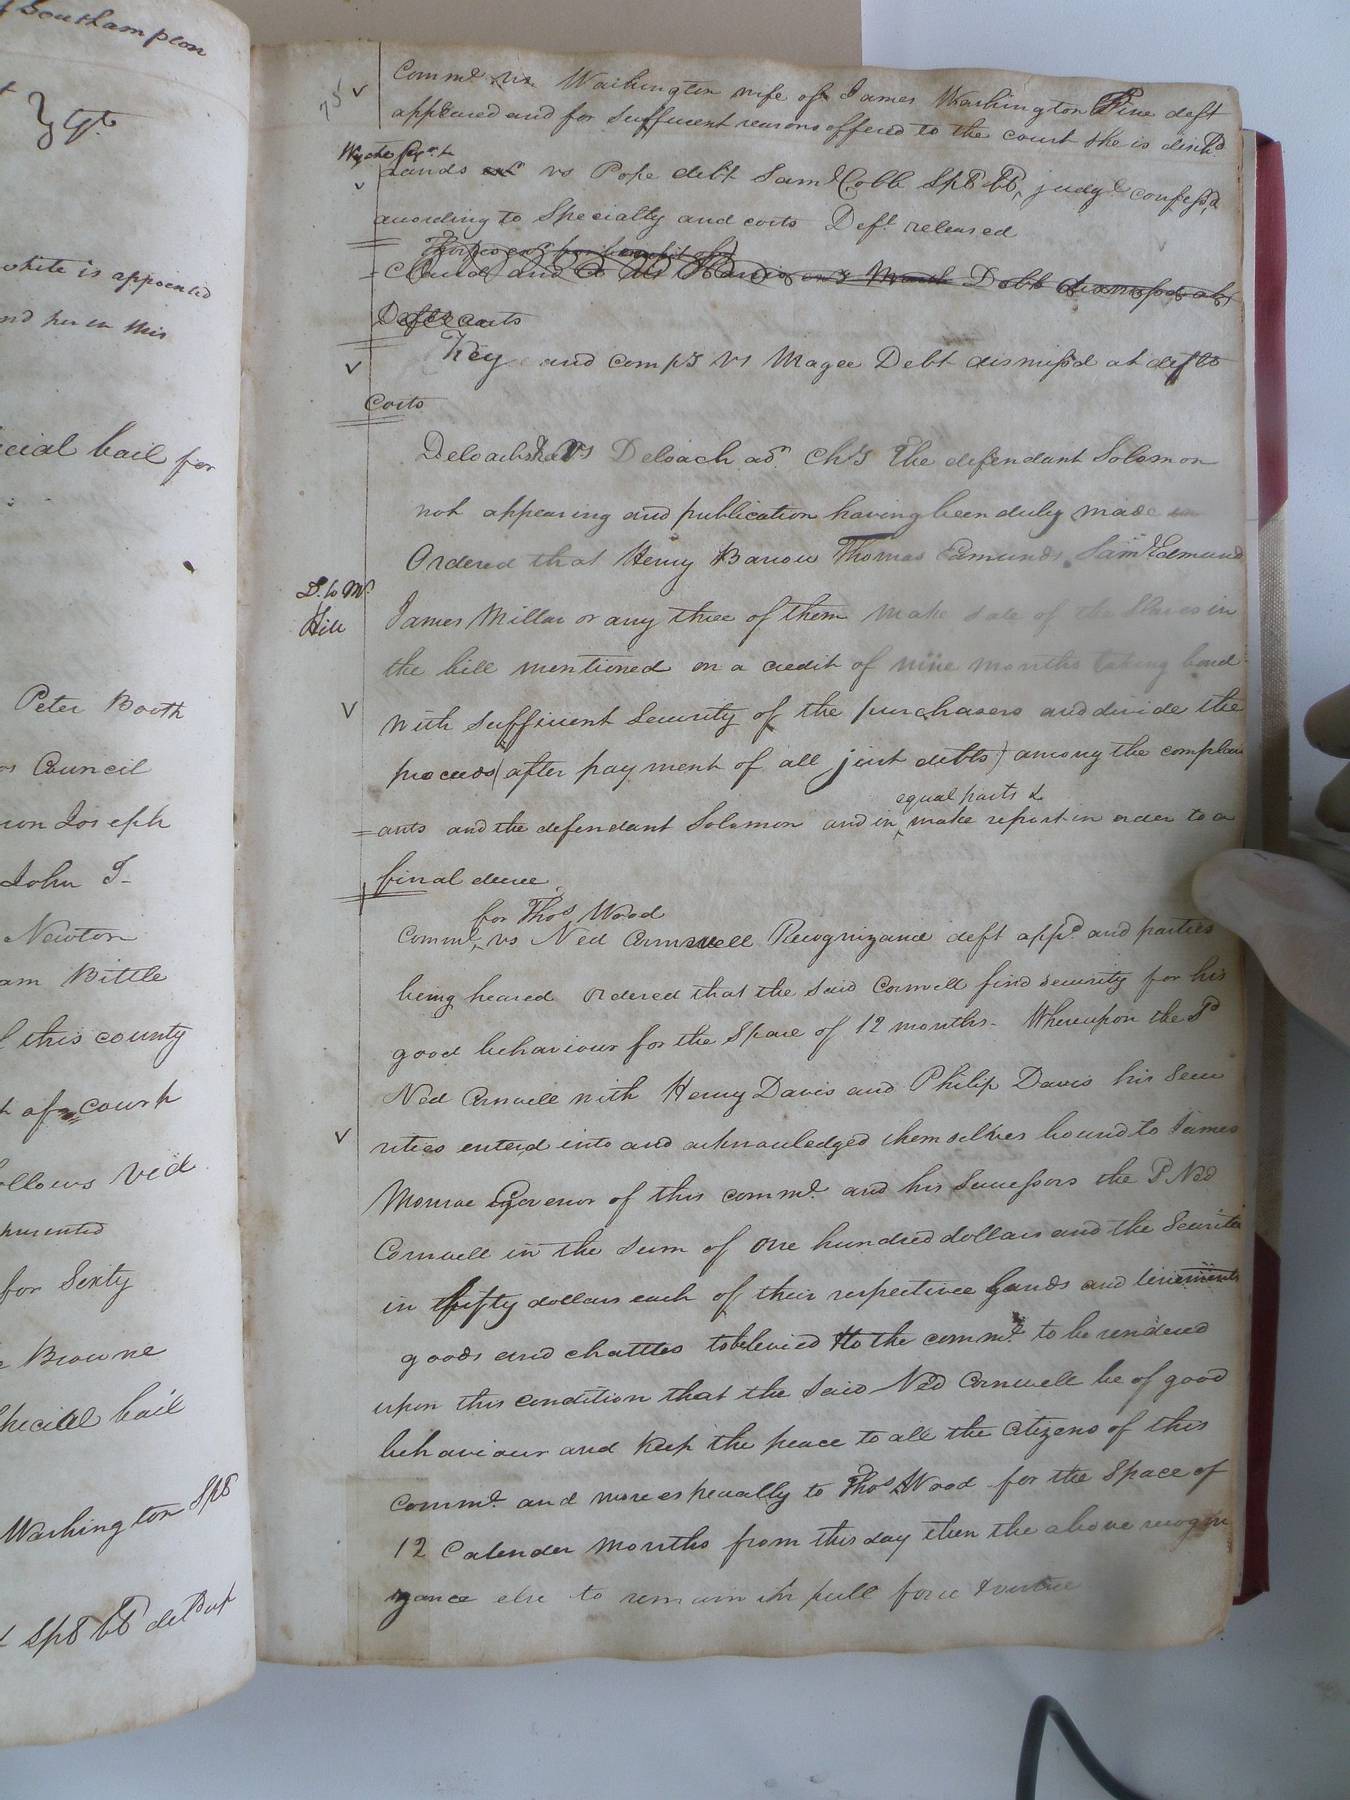 Southampton
white is appointed
cial bail for
Peter Booth
Council
Joseph
John T-
Newton
am Bittle
this county
of court
ollows vid
presented
for Sixty
Browne
special bail
Washington Spl
75
Comme vs Washington wife of James Washington Fine deft
appeared and for sufficient reasons offered to the court she is disch.d
Wyche
Lands vs Pope debt Saml Cobb Spl BB, judgt confess.d
according to Specialty and costs Deft released
Deft costs
Key and comp.y vs Magee Debt dismissd at defts
costs
Deloach vs Deloach ad.m Ch.y The defendant Solomon
not appearing and publication having been duly made
Ordered that Henry Barrow Thomas Edmunds, Saml Edmund
D. to Mr
Hill
James Millar or any three of them make sale of the slaves in
the bill mentioned on a credit of nine months taking bond
with sufficient Security of the purchasers and divide the
proceeds (after payment of all just debts) among the complain
equal parts &
=ants and the defendant Solomon and in ^ make report in order to a
final decree
for Thos Wood
Comme, vs Ned Cornwell Recognizance deft appd and parties
being heared ordered that the said Cornwell find security for his
good behaviour for the Space of 12 months - Whereupon the Sd
Ned Cornwell with Henry Davis and Philip Davis his Secu
rities enterd into and acknowledged themselves bound to James
Monroe Govenor of this comme and his Successors the Sd Ned
Cornwell in the sum of One hundred dollars and the Securities
in fifty dollars each of their respective Lands and tenements
goods and chattles to be levied to the comme to be rendered
upon this condition that the said Ned Cornwell be of good
behaviour and keep the peace to all the Citizens of this
Comme and more especially to Thos Wood for the Space of
12 Calender Months from this day then the above recogni
zance else to remain in full force & virtue